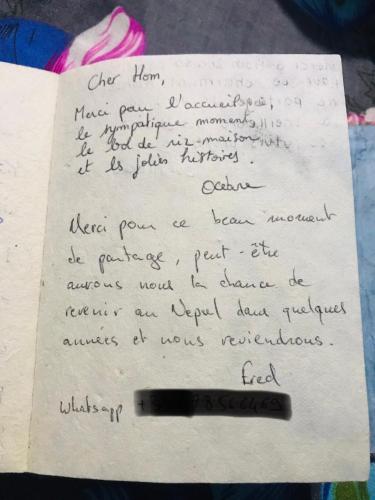 Cher Hom,
Merci pour l'accueil
le sympatique moment,
le bol de riz maison
et les jolies histoires.
Océane
Merci pour ce beau moment
de partage, peut-être
aurons nous la chance de
revenir au Népal dans quelques
années et nous reviendrons.
Fred
Whatsapp